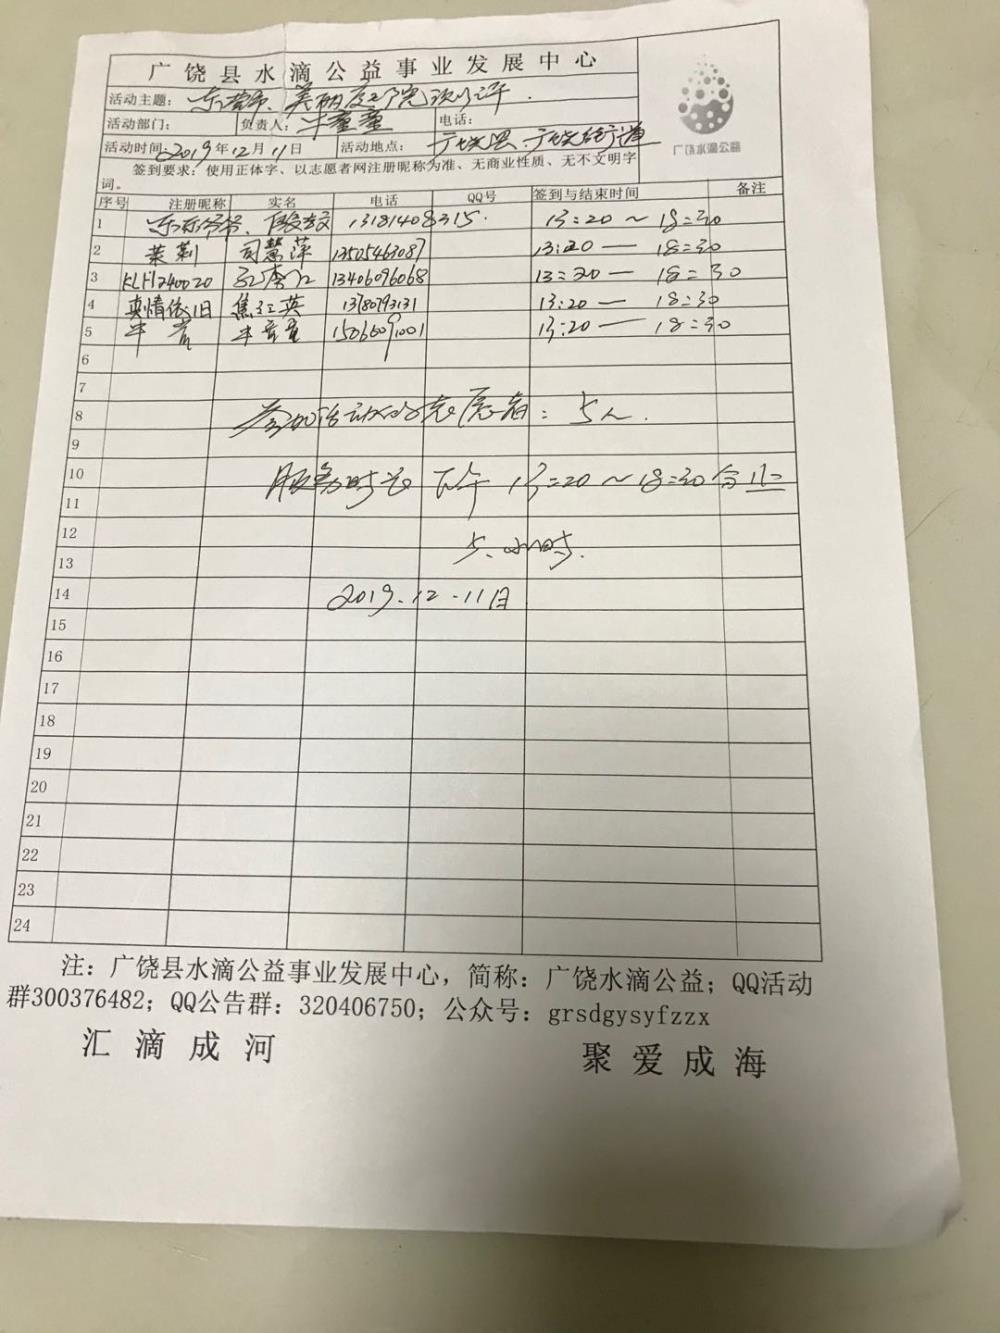 广饶县水滴公益事业发展中心
活动主题: 东营市、美丽庭院预评.
活动部门: 负责人: 牛童童 电话:
活动时间:2019年12月11日 活动地点: 广饶县.广饶街道
签到要求:使用正体字、以志愿者网注册昵称为准、无商业性质、无不文明字
词。
广饶水滴公益
序号 注册昵称 实名 电话 QQ号 签到与结束时间 备注
1 东东爷爷 13181408315. 13:20~18:30
2 茉莉 司慧萍 13505463087 13:20—18:30
3 KLH240020 13406096068 13:20—18:30
4 真情依旧 焦江英 13780793131 13:20—18:30
5 牛 牛童童 15066091001 13:20—18:30
6
7
8 参加活动的志愿者: 5人.
9
10 服务时长 下午 13:20~18:30合计
11
12 5.小时.
13
14 2019.12.11日
15
16
17
18
19
20
21
22
23
24
注:广饶县水滴公益事业发展中心,简称:广饶水滴公益;QQ活动
群300376482;QQ公告群:320406750;公众号:grsdgysyfzzx
汇滴成河 聚爱成海